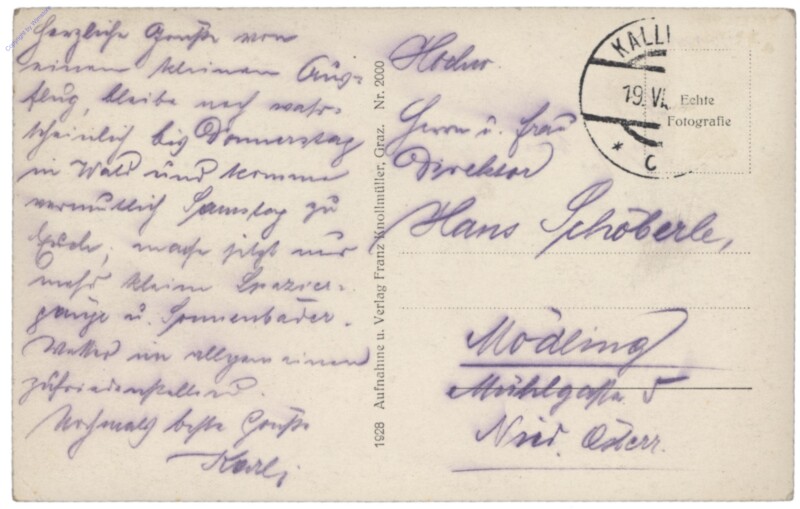 Herzliche Grüße von
einem kleinen Aus=
flug, bleibe noch wahr=
scheinlich bis Donnerstag
in Wald und komme
vermutlich Samstag zu
Euch, mache jetzt nur
mehr kleine Spazier=
gänge u. Sonnenbäder.
Wetter im allgemeinen
zufriedenstellend.
Nochmals beste Grüße
Karl
1928 Aufnahme u. Verlag Franz Knollmüller, Graz. Nr. 2000
KALL
19. VI
* C
Echte
Fotografie
Herrn u. Frau
Direktor
Hans Schöberle,
Mödling
Mühlgasse 5
Nied. Österr.